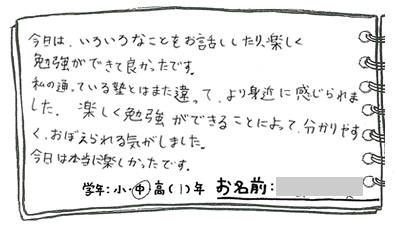 今日は、いろいろなことをお話ししたり、楽しく
勉強ができて良かったです。
私の通っている塾とはまた違って、より身近に感じられま
した。楽しく勉強ができることによって、分かりやす
く、おぼえられる気がしました。
今日は本当に楽しかったです。
学年:小・中・高(1)年 お名前: